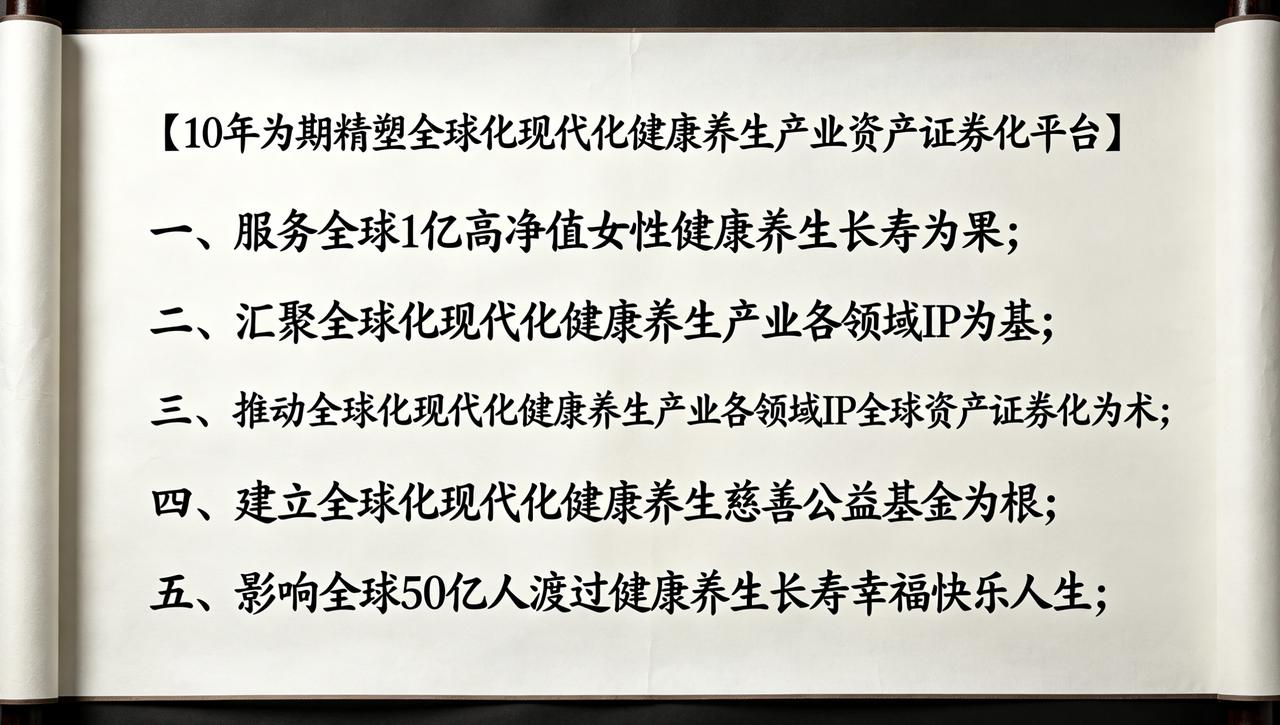 【10年为期精塑全球化现代化健康养生产业资产证券化平台】
一、服务全球1亿高净值女性健康养生长寿为果；
二、汇聚全球化现代化健康养生产业各领域IP为基；
三、推动全球化现代化健康养生产业各领域IP全球资产证券化为术；
四、建立全球化现代化健康养生慈善公益基金为根；
五、影响全球50亿人渡过健康养生长寿幸福快乐人生；